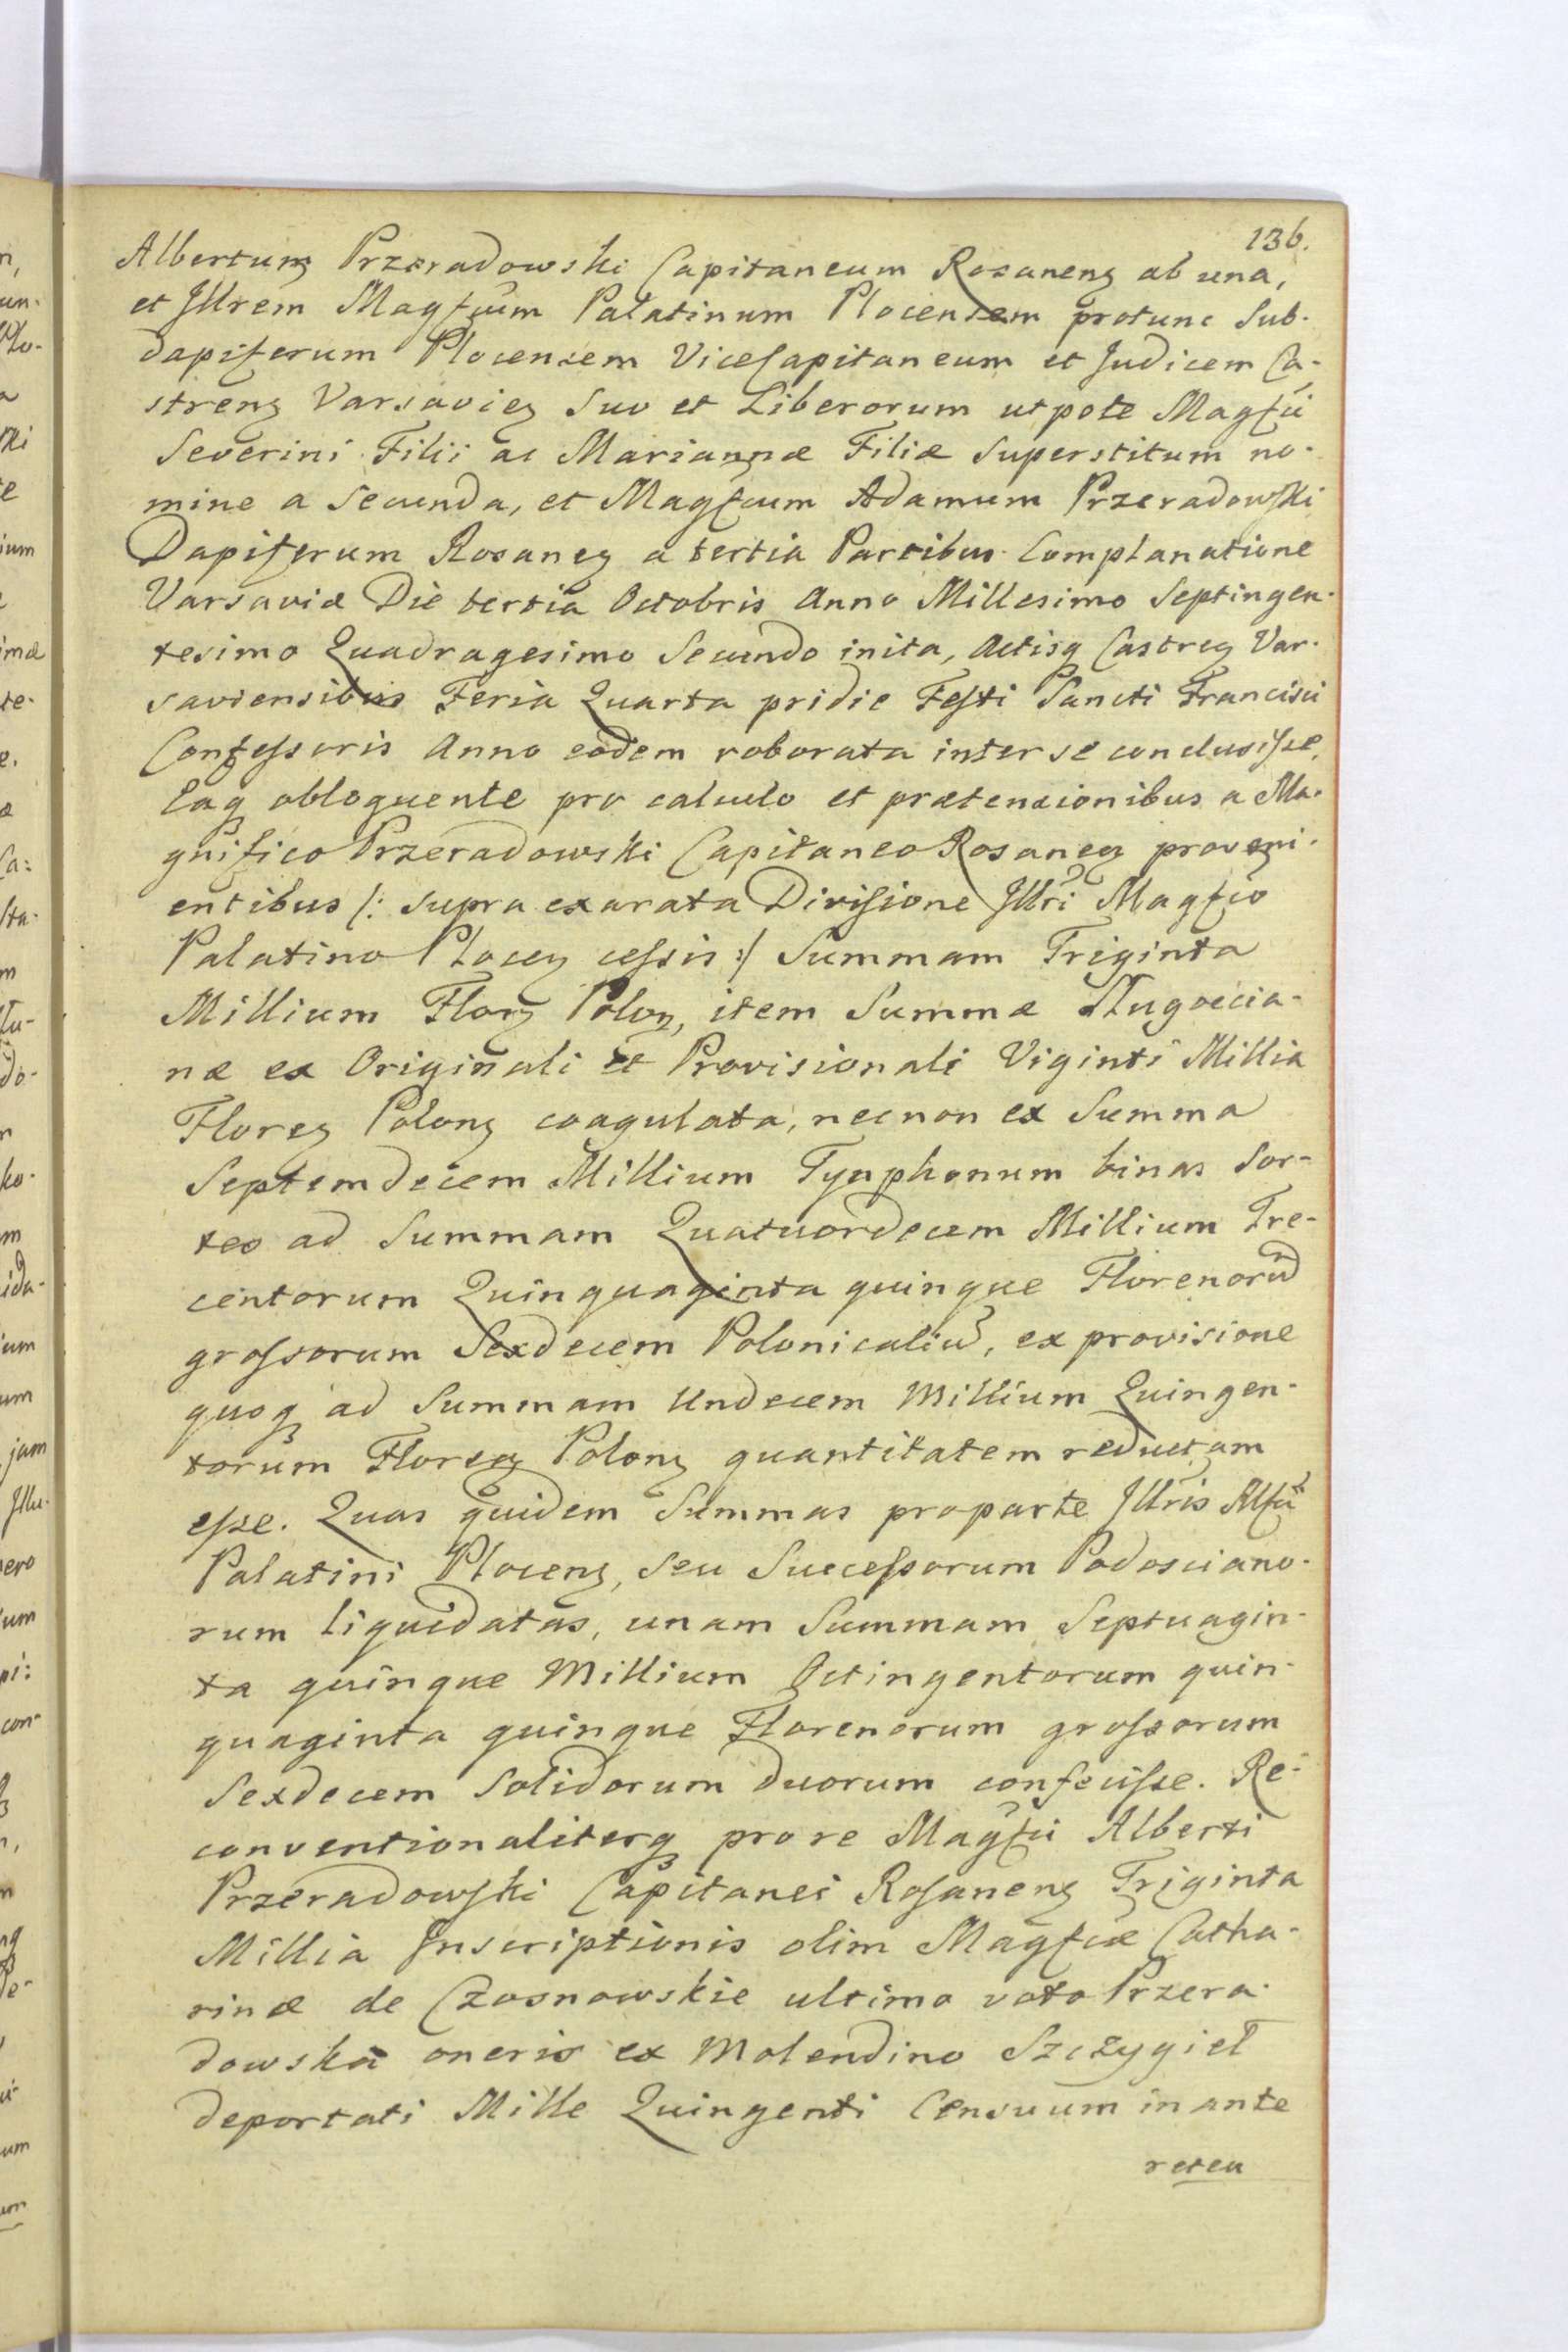 136.
Albertum Przeradowski Capitaneum Rosanenʒ ab una,
et Jllrem Magfcum Palatinum Plocensem protunc Sub-
dapiferum Plocensem ViceCapitaneum et Judicem Ca-
strenʒ Varsavieʒ Suo et Liberorum utpote Magfci
Severini Filii ac Mariannæ Filiæ Superstitum no-
mine a Secunda, et Magfcum Adamum Przeradowski
Dapiferum Rosaneʒ a tertia Partibus Complanatione
Varsaviæ Die tertia Octobris Anno Millesimo Septingen-
tesimo Quadragesimo Secundo inita, Actisqʒ Castreʒ Var-
saviensibus Feria Quarta pridie Festi Sancti Francisci
Confessoris Anno eodem roborata inter se conclusisse,
Eaqʒ obloquente pro calculo et prætensionibus a Ma-
gnifico Przeradowski Capitaneo Rosaneʒ proveni-
entibus /: supra exarata Divisione Jllri Magfco
Palatino Ploceʒ cessis :/ Summam Triginta
Millium Florʒ Polonʒ, item Summæ Dlugoecia-
næ ex Originali et Provisionali Viginti Millia
Floreʒ Polonʒ coagulata, necnon ex Summa
Septemdecem Millium Tynphonum binas Sor-
tes ad Summam Quatuordecem Millium Tre-
centorum Quinquaginta quinque Florenorũ
grossorum Sexdecem Polonicaliũ, ex provisione
quoqʒ ad Summam Undecem Millium Quingen-
torum Floreʒ Polonʒ quantitatem reductam
esse. Quas quidem Summas proparte Jllris Mfci
Palatini Plocenʒ, seu Successorum Podosciano-
rum liquidatas, unam Summam Septuagin-
ta quinque Millium Octingentorum quin-
quaginta quinque Florenorum grossorum
Sexdecem Solidorum duorum confecisse. Re-
conventionaliterqʒ pro re Magfci Alberti
Przeradowski Capitanei Rosanenʒ Triginta
Millia Jnscriptionis olim Magfcæ Catha-
rinæ de Czosnowskie ultimo voto Przera-
dowska oneris ex Molendino Szczygieł
deportati Mille Quingenti Censuum in ante
reten